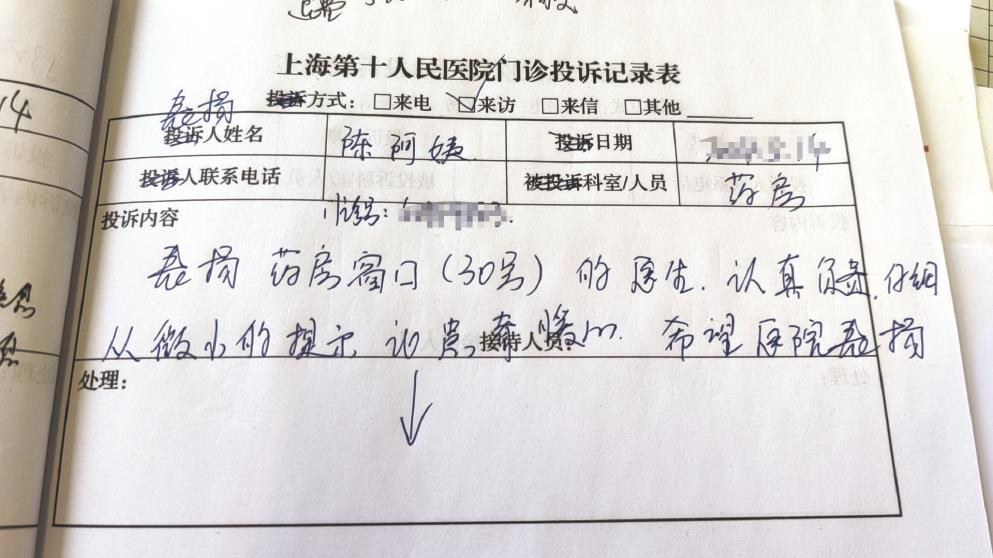 上海第十人民医院门诊投诉记录表
表扬
投诉方式：□来电 ☑来访 □来信 □其他
投诉人姓名 陈阿姨 投诉日期
投诉人联系电话 被投诉科室/人员 药房
投诉内容
表扬 药房窗口（30号）的医生.认真负责.仔细
从微小的提示 让患者暖心. 希望医院表扬
接待人员：
处理：